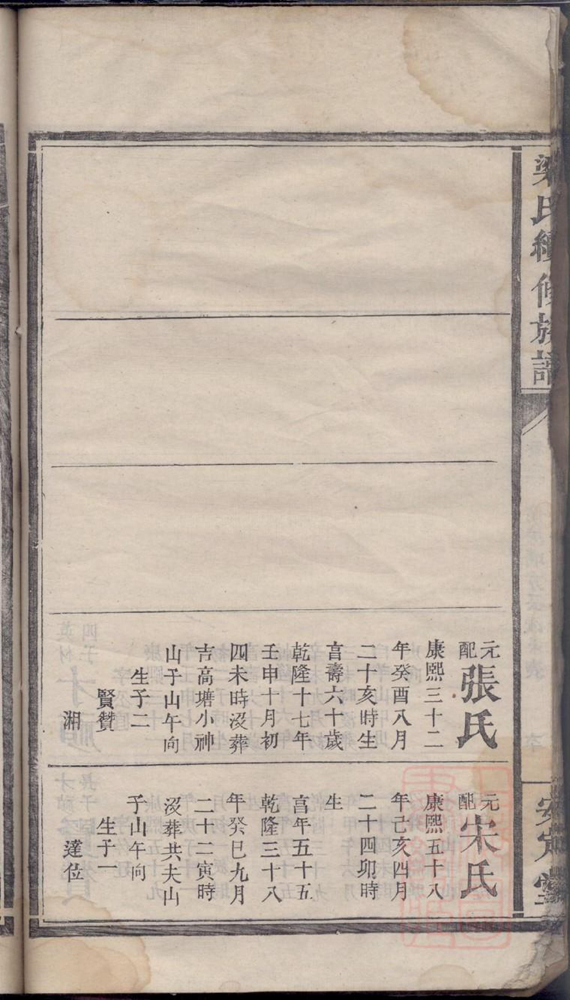 梁氏續修族譜
安定堂
元配張氏
康熙三十二
年癸酉八月
二十亥時生
享壽六十歲
乾隆十七年
壬申十月初
四未時沒葬
吉高塘小神
山子山午向
生子二
賢贊
湘
元配宋氏
康熙五十八
年己亥四月
二十四卯時
生
享年五十五
乾隆三十八
年癸巳九月
二十二寅時
沒葬共夫山
子山午向
生子一
達位